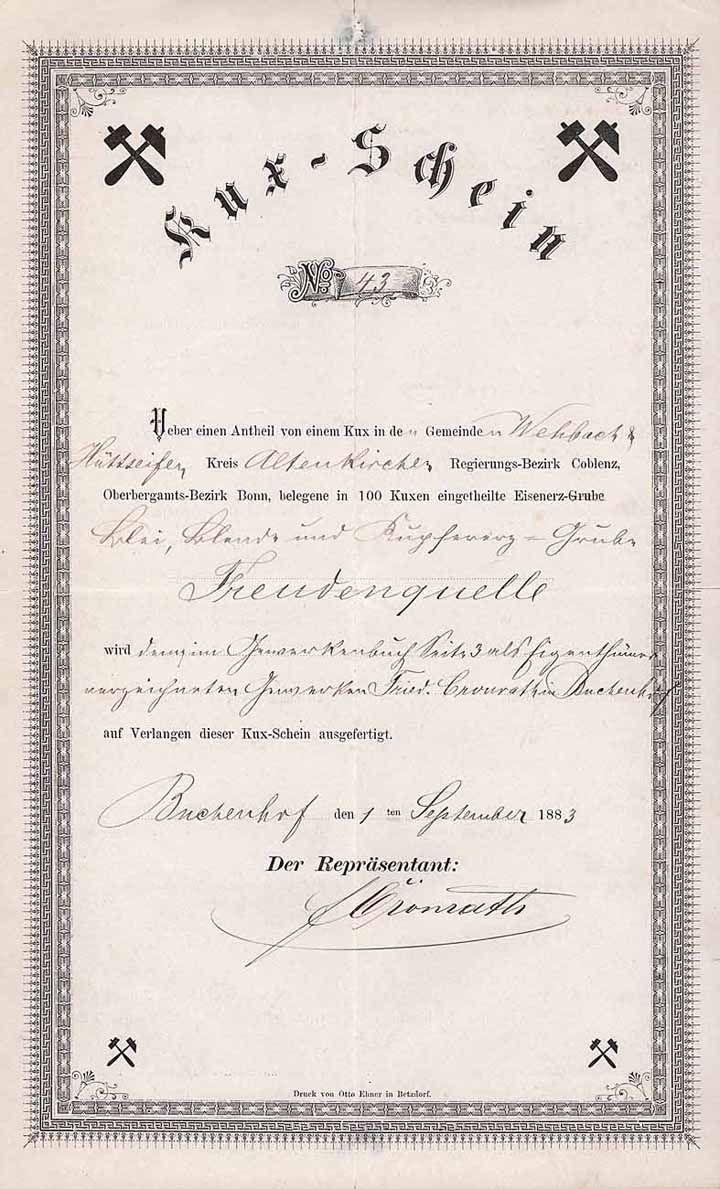 Kux-Schein
No. 43
Ueber einen Antheil von einem Kux in den Gemeinden Wehbach &
Hüttseifen Kreis Altenkirchen Regierungs-Bezirk Coblenz,
Oberbergamts-Bezirk Bonn, belegene in 100 Kuxen eingetheilte Eisenerz-Grube
Blei, Blende und Kupfererz-Grube
Freudenquelle
wird dem im Gewerkenbuch Seite 3 als Eigenthümer
verzeichneten Gewerken Fried. Cronrath in Buchenhof
auf Verlangen dieser Kux-Schein ausgefertigt.
Buchenhof den 1 ten September 1883
Der Repräsentant:
F Cronrath
Druck von Otto Ebner in Betzdorf.